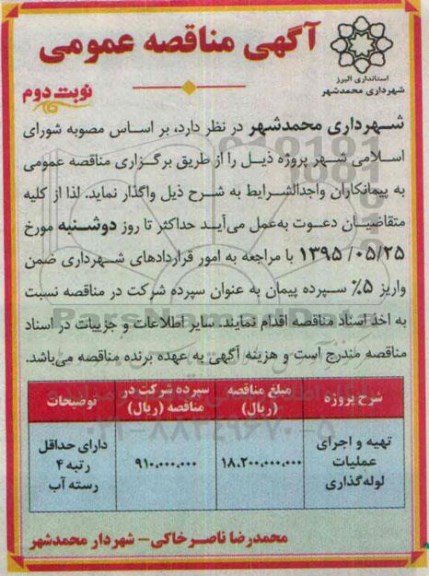 آگهی مناقصه عمومی
استانداری البرز
شهرداری محمدشهر
نوبت دوم
شهرداری محمدشهر در نظر دارد، بر اساس مصوبه شورای
اسلامی شهر پروژه ذیل را از طریق برگزاری مناقصه عمومی
به پیمانکاران واجدالشرایط به شرح ذیل واگذار نماید. لذا از کلیه
متقاضیان دعوت به‌عمل می‌آید حداکثر تا روز دوشنبه مورخ
۱۳۹۵/۰۵/۲۵ با مراجعه به امور قراردادهای شهرداری ضمن
واریز ۵٪ سپرده پیمان به عنوان سپرده شرکت در مناقصه نسبت
به اخذ اسناد مناقصه اقدام نمایند. سایر اطلاعات و جزییات در اسناد
مناقصه مندرج است و هزینه آگهی به عهده برنده مناقصه می‌باشد.
ParsNamadData
۰۲۱-۸۸۳۴۹۶۷۰-۵
شرح پروژه
مبلغ مناقصه
(ریال)
سپرده شرکت در
مناقصه (ریال)
توضیحات
تهیه و اجرای
عملیات
لوله‌گذاری
۱۸،۲۰۰،۰۰۰،۰۰۰
۹۱۰،۰۰۰،۰۰۰
دارای حداقل
رتبه ۴
رسته آب
محمدرضا ناصرخاکی- شهردار محمدشهر